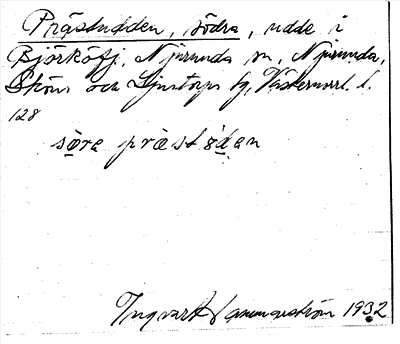 Prästudden, södra, udde i
Björköfj., Njurunda sn, Njurunda,
Sköns och Ljustorps tg, Västernorrl. l.
128
söre präst ùden
Ingvart Hammarström 1932